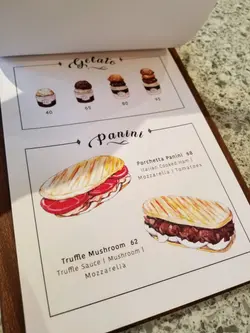 Gelato
45
64
80
92
Panini
Porchetta Panini 68
Italian Cooked Ham |
Mozzarella | Tomatoes
Truffle Mushroom 62
Truffle Sauce | Mushroom |
Mozzarella